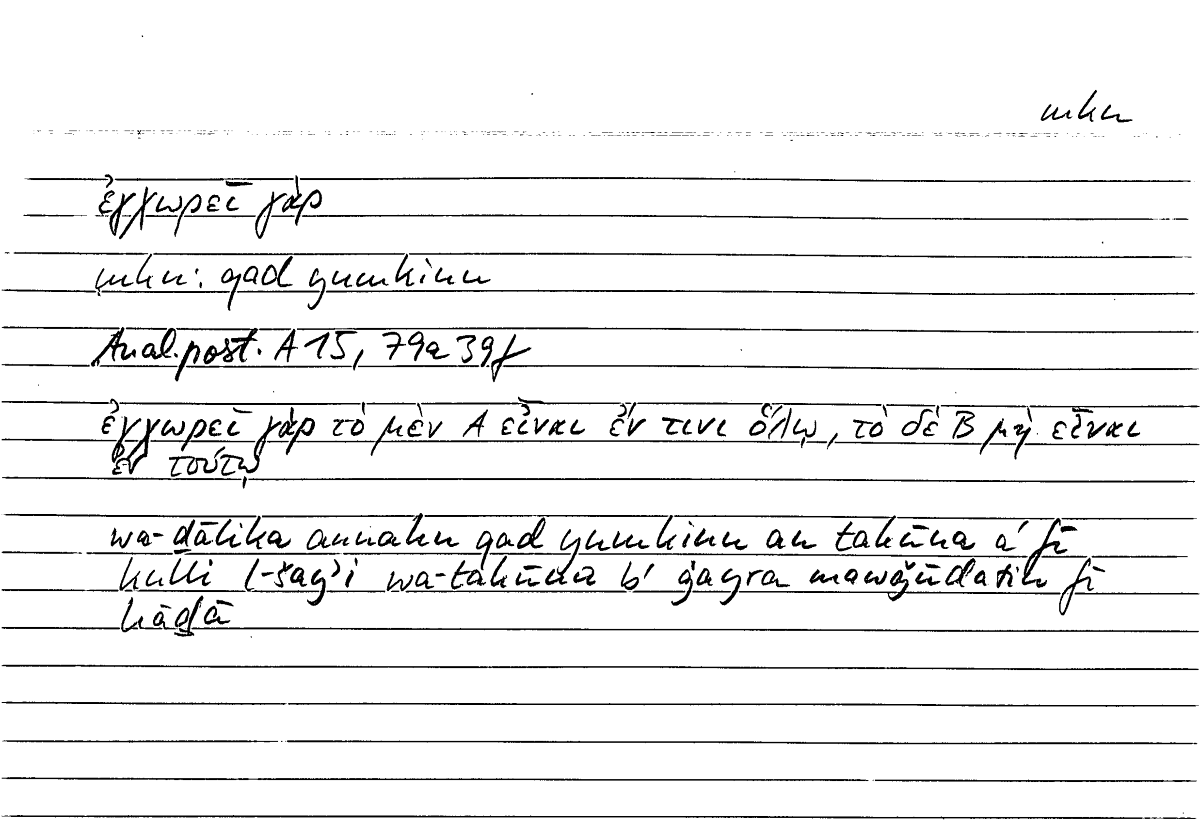 mkn
ἐγχωρεῖ γάρ
mkn: qad yumkinu
Anal. post. A 15, 79a 39f
ἐγχωρεῖ γὰρ τὸ μὲν A εἶναι ἔν τινι ὅλῳ, τὸ δὲ B μὴ εἶναι
ἐν τούτῳ
wa-ḏālika annahu qad yumkinu an takūna a' fī
kulli l-šayʾi wa-takūna b' ġayra mawǧūdatin fī
hāḏā